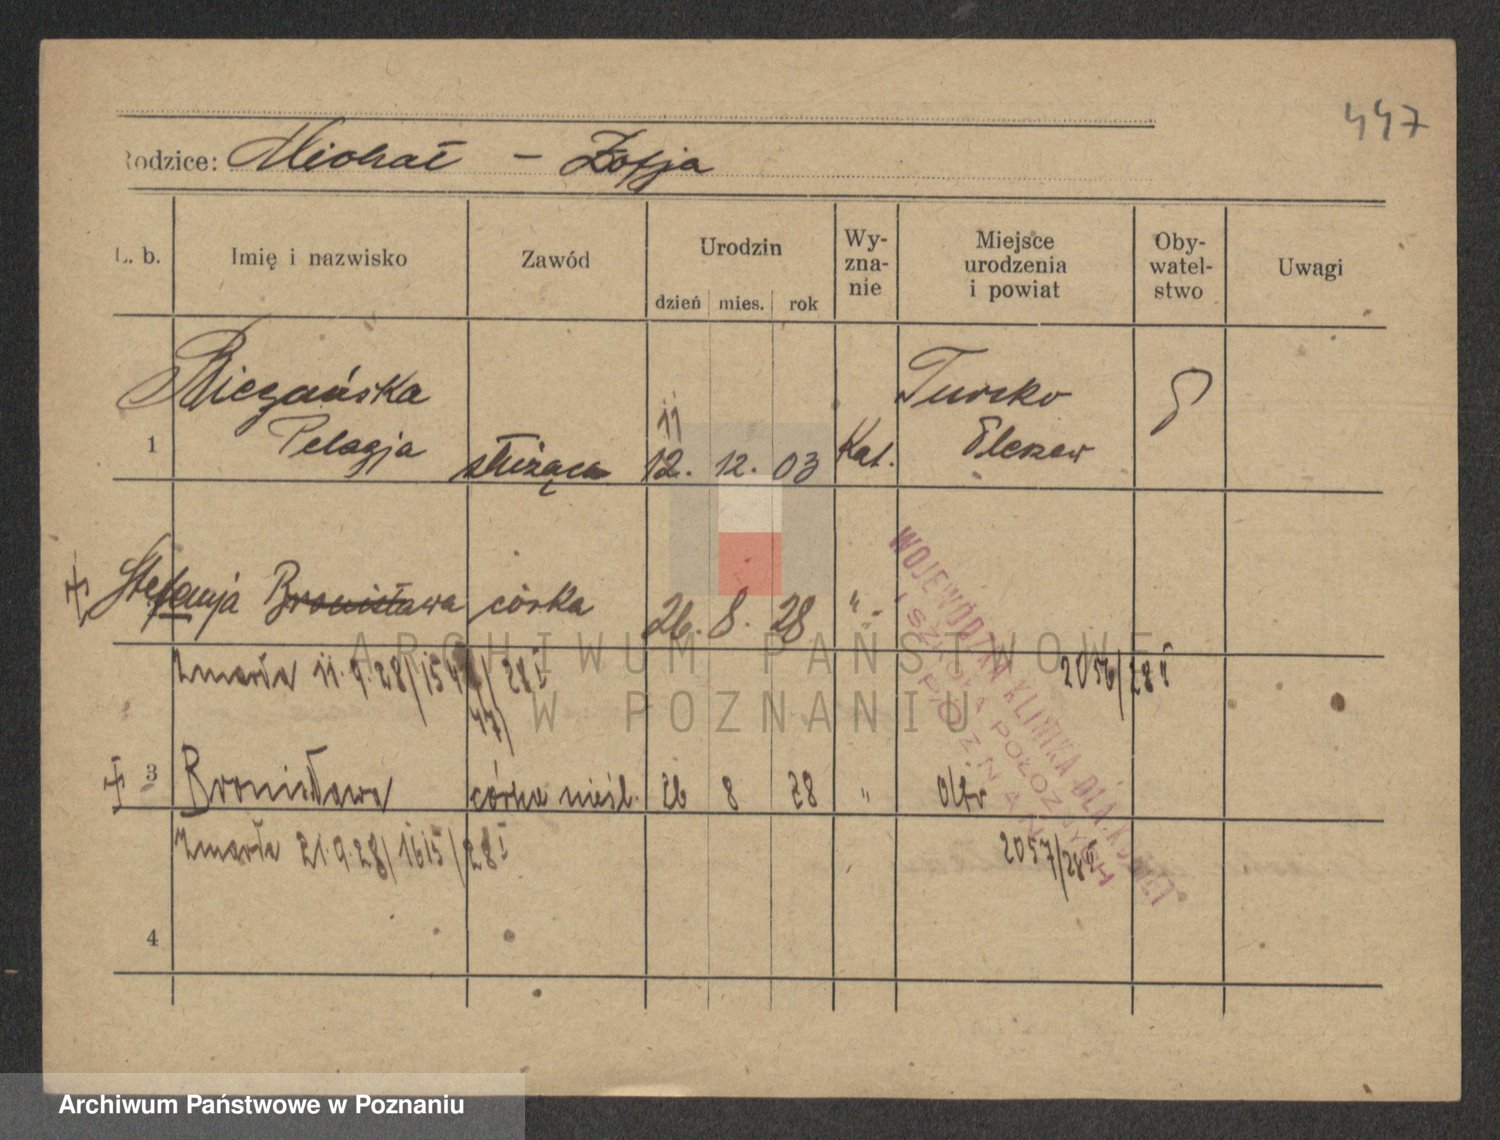 447
Rodzice: Michał - Zofja
L. b. Imię i nazwisko Zawód Urodzin dzień mies. rok Wy-zna-nie Miejsce urodzenia i powiat Oby-watel-stwo Uwagi
Biegańska Tursko
11
1 Pelagja służąca 12. 12. 03 Kat. Pleszew
Stefanja Bronisława córka 26. 8. 28 "
Zmarła 11.9.28/15 /28 I 2056/28 I
47/
3 Bronisława córka nieśl. 26 8 28 "
Zmarła 21.9.28/1615/28 I 2057/28 I
4
WOJEWÓDZKA KLINIKA DLA KOBIET
I SZKOŁA POŁOŻNYCH
POZNAŃ
ARCHIWUM PAŃSTWOWE
W POZNANIU
Archiwum Państwowe w Poznaniu